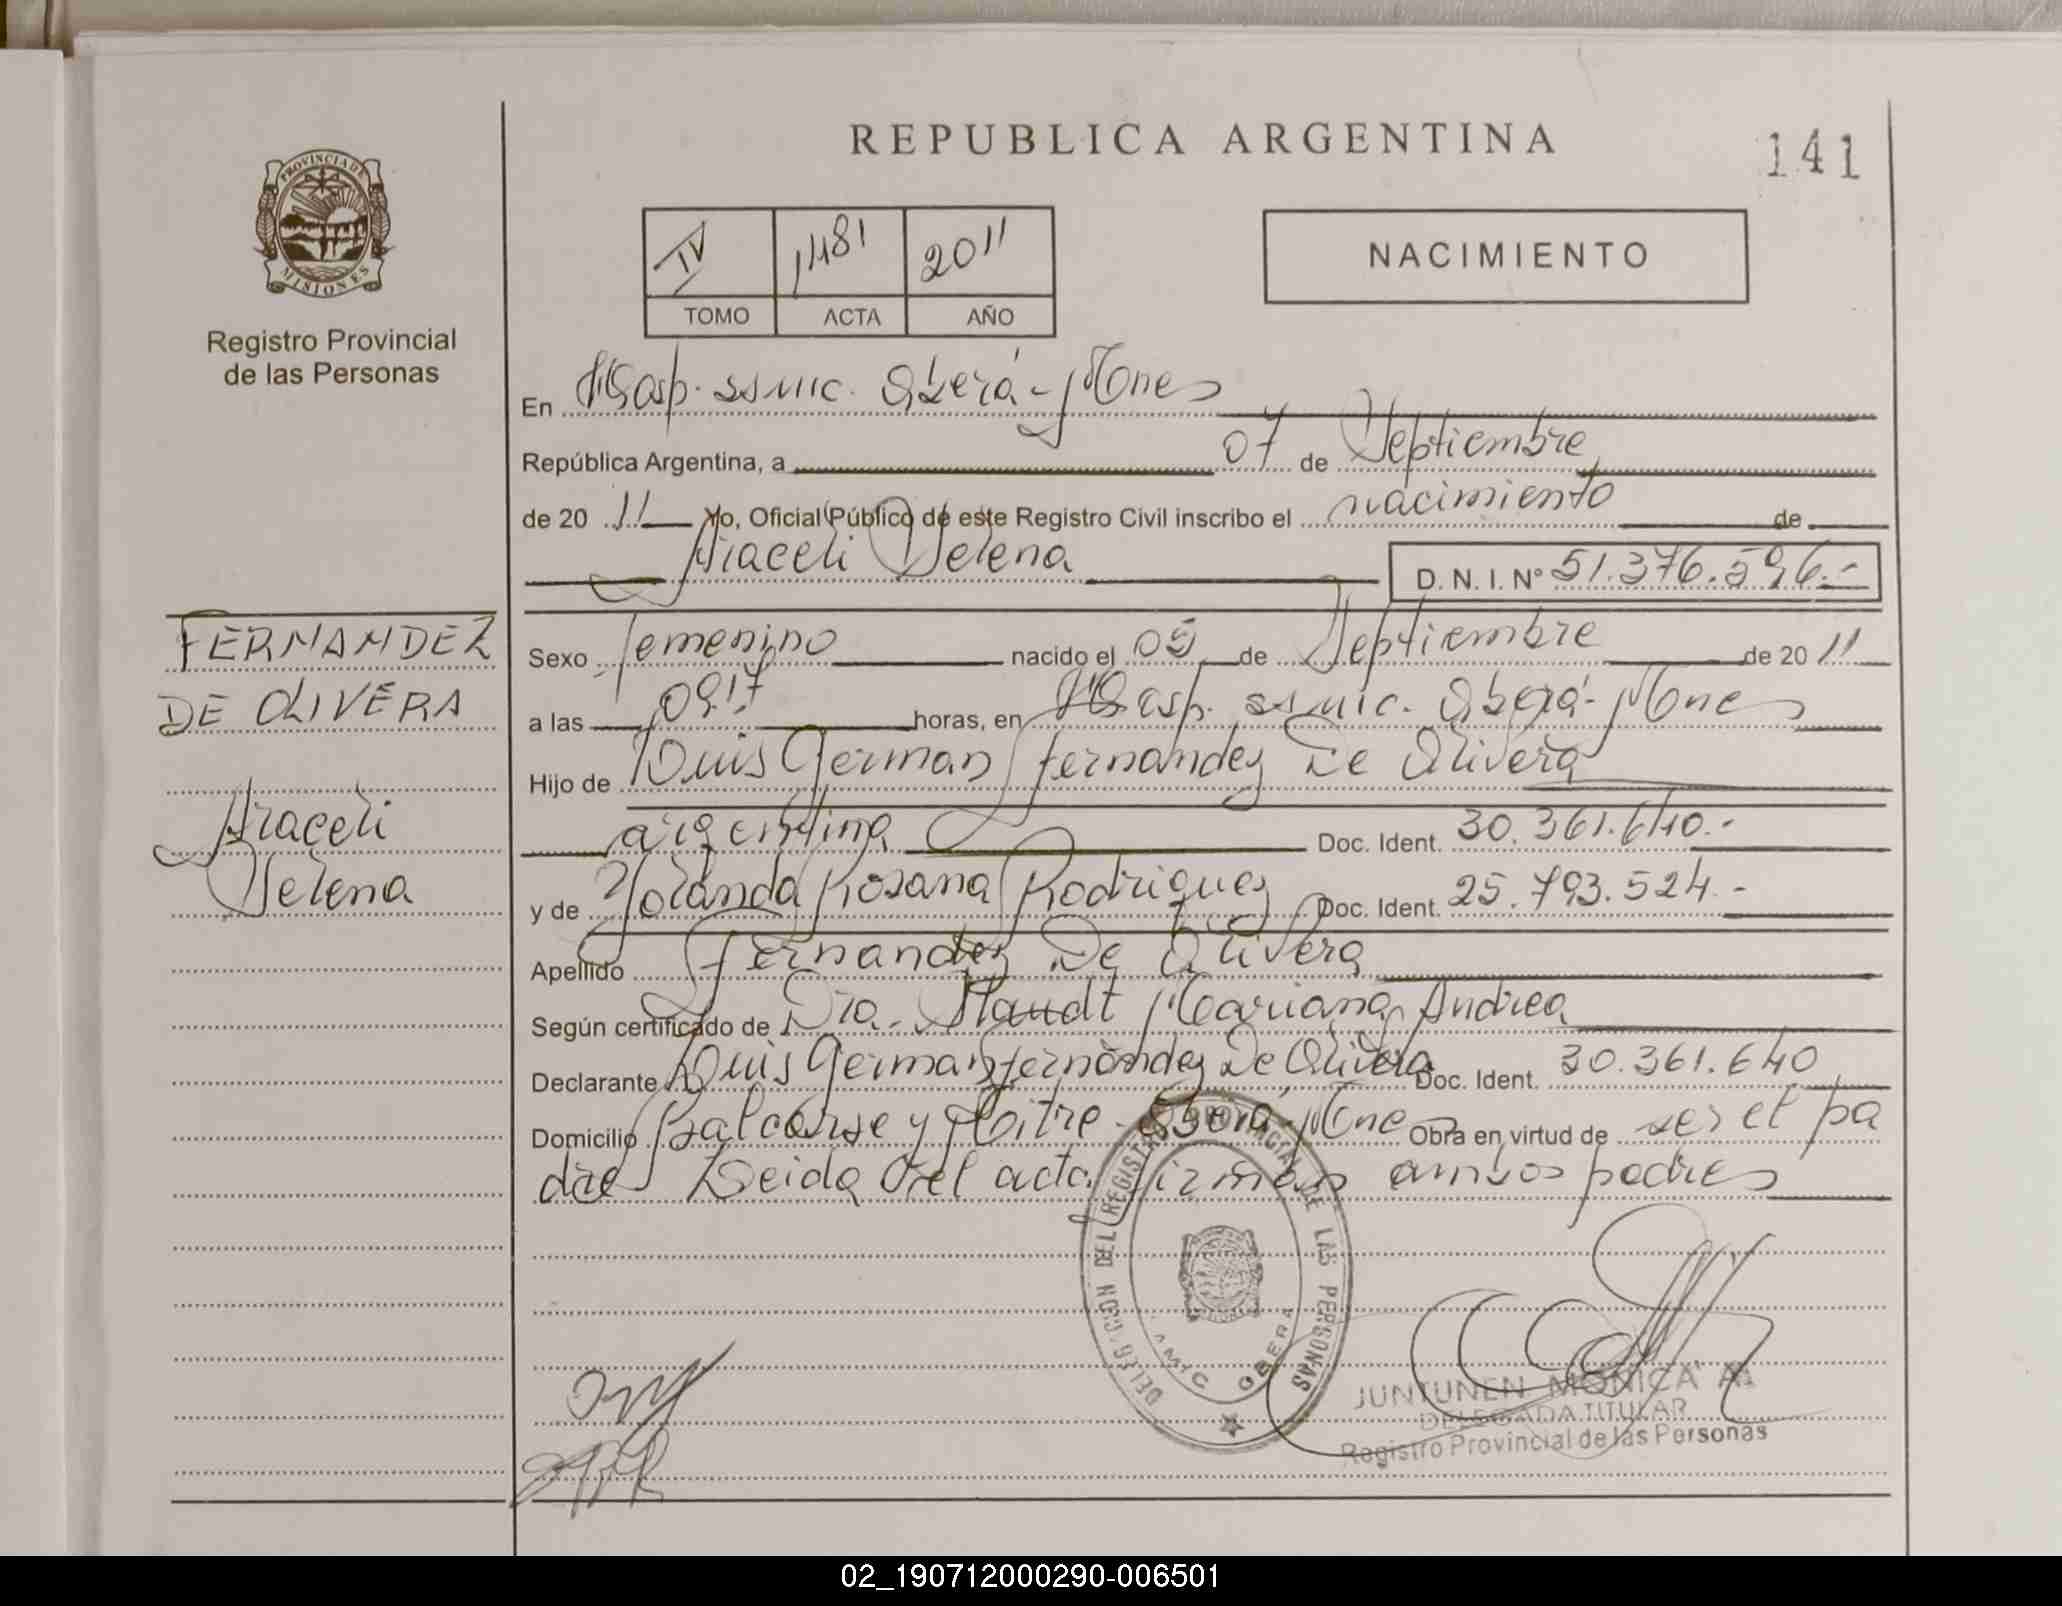 REPUBLICA ARGENTINA
141
PROVINCIA DE
MISIONES
Registro Provincial
de las Personas
IV 1481 2011
TOMO ACTA AÑO
NACIMIENTO
En Hosp. SSMIC. Oberá - Mnes
República Argentina, a 07 de Septiembre
de 20 11 Yo, Oficial Público de este Registro Civil inscribo el nacimiento de
Araceli Selena
D. N. I. Nº 51.376.596.-
FERNANDEZ
DE OLIVERA
Araceli
Selena
Sexo femenino nacido el 05 de Septiembre de 20 11
a las 09.17 horas, en Hosp. SSMIC. Oberá - Mnes
Hijo de Luis German Fernandez De Olivera
argentina Doc. Ident. 30.361.640.-
y de Yolanda Rosana Rodriguez Doc. Ident. 25.793.524.-
Apellido Fernandez De Olivera
Según certificado de Dra. Staudt Mariana Andrea
Declarante Luis German Fernandez De Olivera Doc. Ident. 30.361.640
Domicilio Balcarse y Mitre - Oberá - Mnes Obra en virtud de ser el pa
dre Leida el acta firman ambos padres
DELEGACION DEL REGISTRO PROVINCIAL DE LAS PERSONAS
OBERA
JUNTUNEN MONICA A.
DELEGADA TITULAR
Registro Provincial de las Personas
02_190712000290-006501